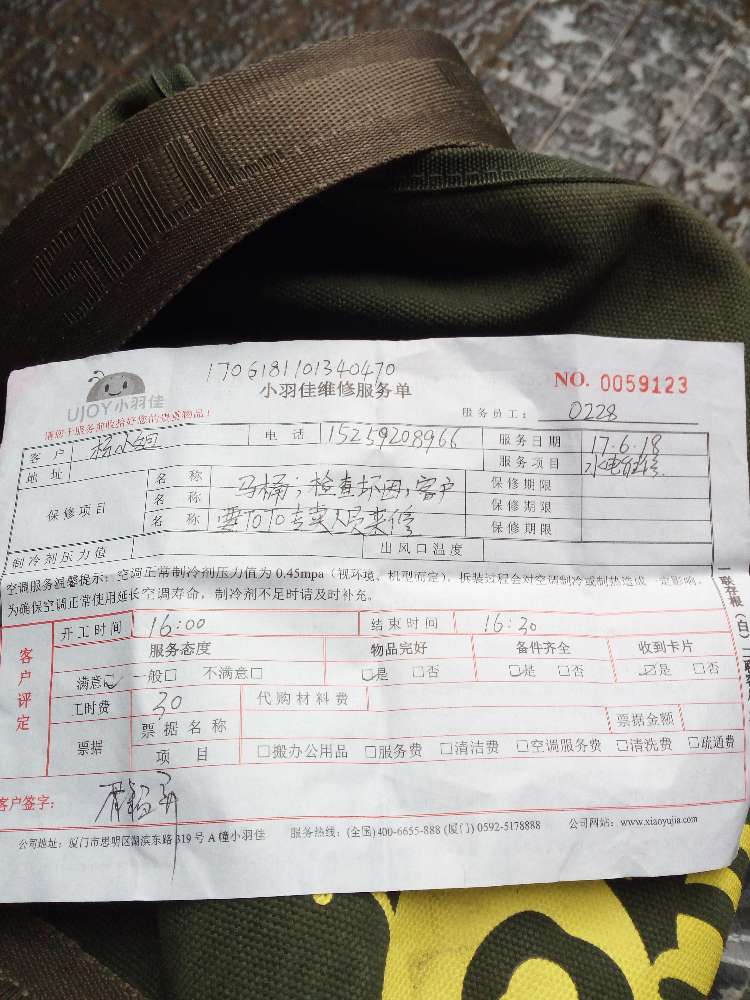 STIJL
1706181101340470
UJOY小羽佳
小羽佳维修服务单
NO. 0059123
请您于服务前收拾好您的贵重物品!
服务员工: 0228
客户 杨小姐 电话 15259208966 服务日期 17.6.18
地址 服务项目 水电维修
保修项目 名称 马桶;检查坏因,客户 保修期限
名称 保修期限
名称 要TOTO专卖人员来修 保修期限
制冷剂压力值 出风口温度
空调服务温馨提示:空调正常制冷剂压力值为0.45mpa(视环境、机型而定),拆装过程会对空调制冷或制热造成一定影响,
为确保空调正常使用延长空调寿命,制冷剂不足时请及时补充。
一联存根(白)二联客
开工时间 16:00 结束时间 16:30
客户评定
服务态度 物品完好 备件齐全 收到卡片
满意☑ 一般□ 不满意□ ☑是 □否 ☑是 □否 ☑是 □否
工时费 30 代购材料费
票据 票据名称 票据金额
项目 □搬办公用品 □服务费 □清洁费 □空调服务费 □清洗费 □疏通费
客户签字:
公司地址:厦门市思明区湖滨东路319号A幢小羽佳 服务热线:(全国)400-6655-888 (厦门) 0592-5178888 公司网站:www.xiaoyujia.com